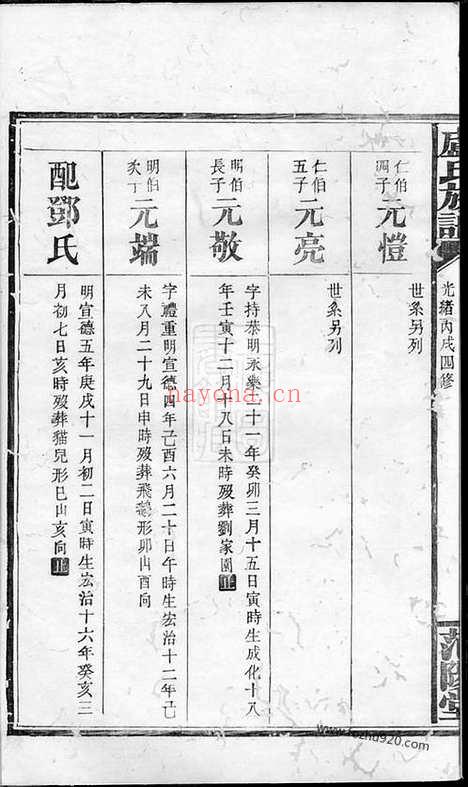 盧氏族譜
光緒丙戌四修
范陽堂
仁伯
四子
元愷
世系另列
仁伯
五子
元亮
世系另列
明伯
長子
元敬
字持恭明永樂二十一年癸卯三月十五日寅時生成化十八
年壬寅十二月十八日未時歿葬劉家園
明伯
次子
元端
字禮重明宣德四年己酉六月二十日午時生宏治十二年己
未八月二十九日申時歿葬飛鵝形卯山酉向
配鄧氏
明宣德五年庚戌十一月初二日寅時生宏治十六年癸亥三
月初七日亥時歿葬貓兒形巳山亥向
nayona.cn
www.fozhu920.com